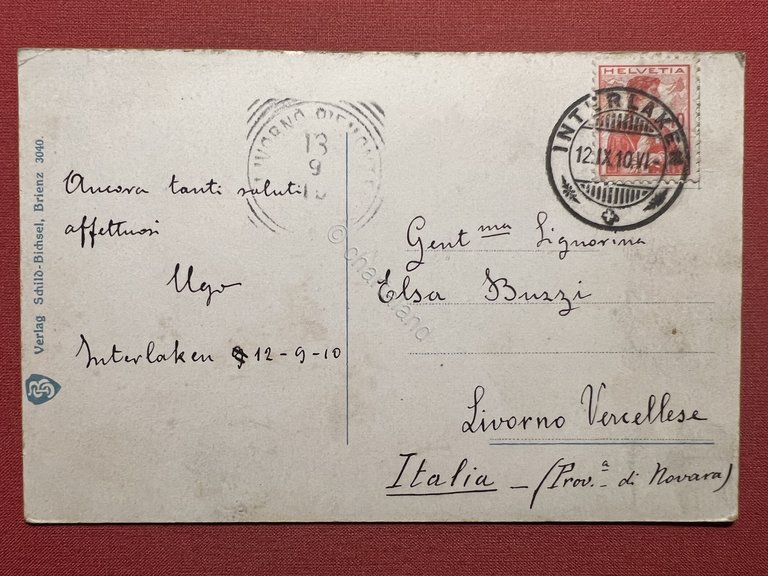 Verlag Schild-Bichsel, Brienz 3040.
LIVORNO PIEMONTE
13
9
10
HELVETIA
INTERLAKEN
12.IX.10.VI-
Ancora tanti saluti
affettuosi
Ugo
Interlaken 12-9-10
Gent ma Signorina
Elsa Buzzi
Livorno Vercellese
Italia - (Prov.a di Novara)